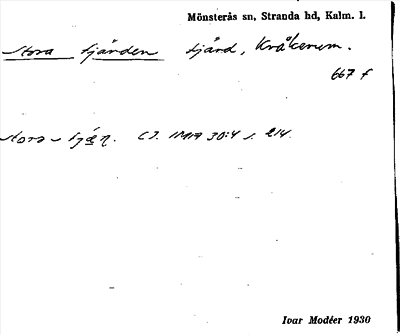 Mönsterås sn, Stranda hd, Kalm. l.
Stora fjärden fjärd, Kråkerum.
667 f
stora - fjæṇ. Cf. IMA 30:4 s. 214.
Ivar Modéer 1930